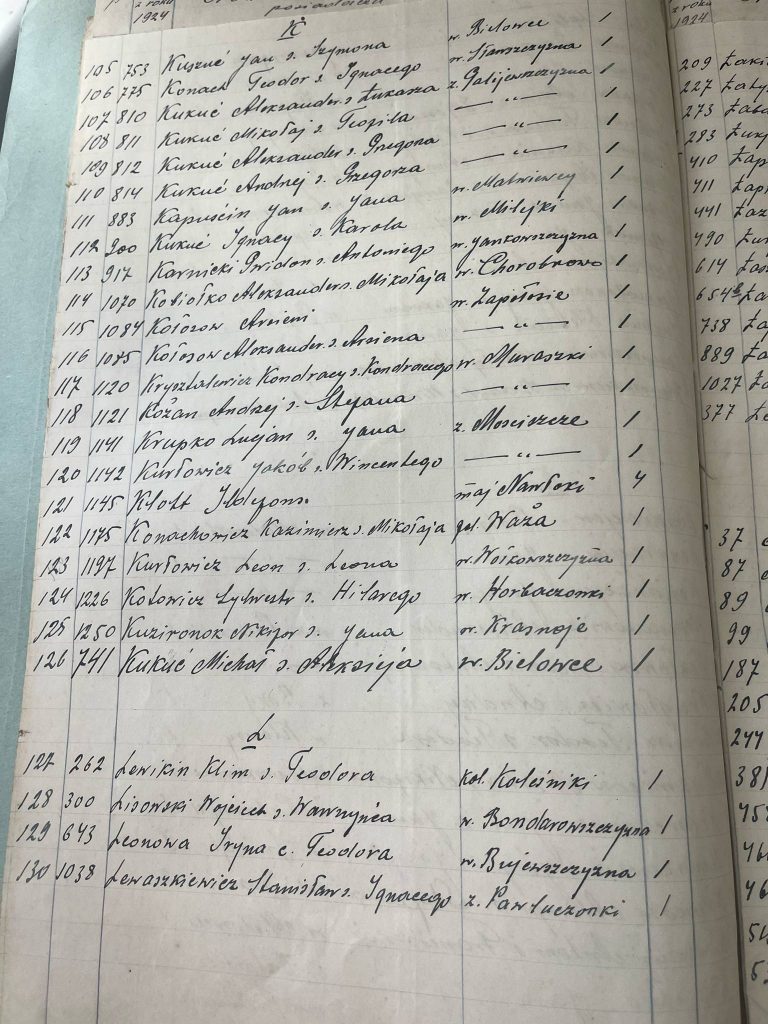 z roku
1924
posiadacza
K
105 753 Kuszuć Jan s. Szymona w. Bielowce 1
106 775 Konach Teodor s. Ignacego w. Stanszczyzna 1
107 810 Kukuć Aleksander s. Łukasza z. Galijewszczyzna 1
108 811 Kukuć Mikołaj s. Teofila — „ — 1
109 812 Kukuć Aleksander s. Grzegorza — „ — 1
110 814 Kukuć Andrzej s. Grzegorza — „ — 1
111 883 Kapuścin Jan s. Jana w. Matwiewcy 1
112 900 Kukuć Ignacy s. Karola w. Milejki 1
113 917 Karnicki s. Antoniego w. Jankowszczyzna 1
114 1070 Kobiołko Aleksander s. Mikołaja w. Chorobrowo 1
115 1084 Kołosow Arsieni w. Zapolesie 1
116 1085 Kołosow Aleksander s. Arsiena — „ — 1
117 1120 Krysztalewicz Kondracy s. Kondracego w. Muraszki 1
118 1121 Kożan Andrzej s. Stefana — „ — 1
119 1141 Krupko Lucjan s. Jana z. Mosciszcze 1
120 1142 Kurłowicz Jakób s. Wincentego — „ — 1
121 1145 Klott Ildefons maj Nawłoki 4
122 1175 Konachowicz Kazimierz s. Mikołaja fol. Waża 1
123 1197 Kurłowicz Leon s. Leona w. Wołkowszczyzna 1
124 1226 Kotowicz Sylwestr s. Hilarego w. Horbaczonki 1
125 1250 Kuzironok Nikifor s. Jana w. Krasnoje 1
126 741 Kukuć Michał s. Aleksieja w. Bielowce 1
L
127 262 Lewikin Klim s. Teodora kol. Koleśniki 1
128 300 Lisowski Wojciech s. Wawrzyńca w. Bondarowszczyzna 1
129 643 Leonowa Iryna c. Teodora w. Bujewszczyzna 1
130 1038 Lewaszkiewicz Stanisław s. Ignacego z. Pawluczonki 1
z roku
1924
209
227
273
283
410
411
441
490
614
654
738
889
1027
377
37
87
89
99
187
205
244